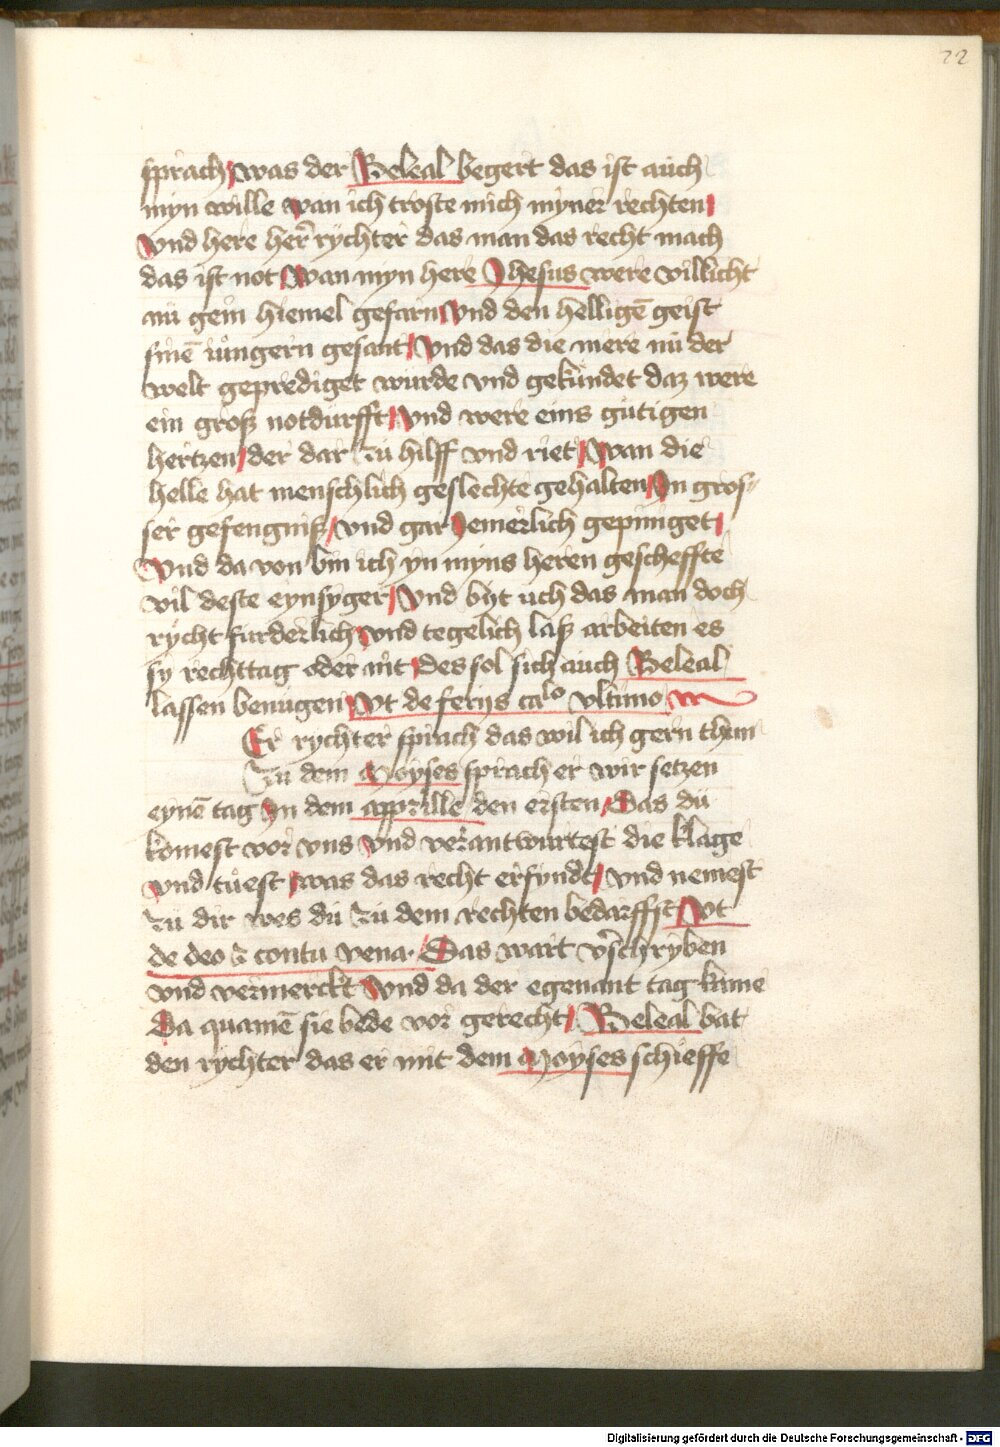 22
sprach was der Beleal begert das ist auch
myn wille wan ich troste mich myner rechten
vnd here her rychter das man das recht mach
das ist not Wan myn here Jhesus were villicht
nü gein hiemel gefarn Vnd den helligē geist
sinē iůngern gesant Vnd das die mere nü der
welt geprediget wurde vnd gekündet daz were
ein groß notdurfft Vnd were eins gütigen
hertzen der dar zü hilff vnd riet Wan die
helle hat menschlich geslechte gehalten In gros-
ser gefengniß vnd gar Jemerlich gepiniget
Vnd da von bin ich yn myns heren gescheffte
vil deste eynsyger Vnd byt uch das man doch
rycht furderlich vnd tegelich laß arbeiten es
sy rechttag oder nit des sol sich auch Beleal
lassen benugen Vt de ferijs calo vltimo
Er rychter sprach das wil ich gern thun
Zu dem Moyses sprach er wir setzen
eynē tag In dem apprille den ersten Das dü
komest vor vns vnd verantwurtest die klage
vnd tůest was das recht erfyndt vnd nemest
zü dir wes dü zü dem rechten bedarffst Vt
de deo z contu vena. Das wart v̄schryben
vnd vermerckt Vnd da der egenant tag kame
Da quamē sie bede vor gerecht Beleal bat
den rychter das er mit dem Moyses schieffe
Digitalisierung gefördert durch die Deutsche Forschungsgemeinschaft - DFG